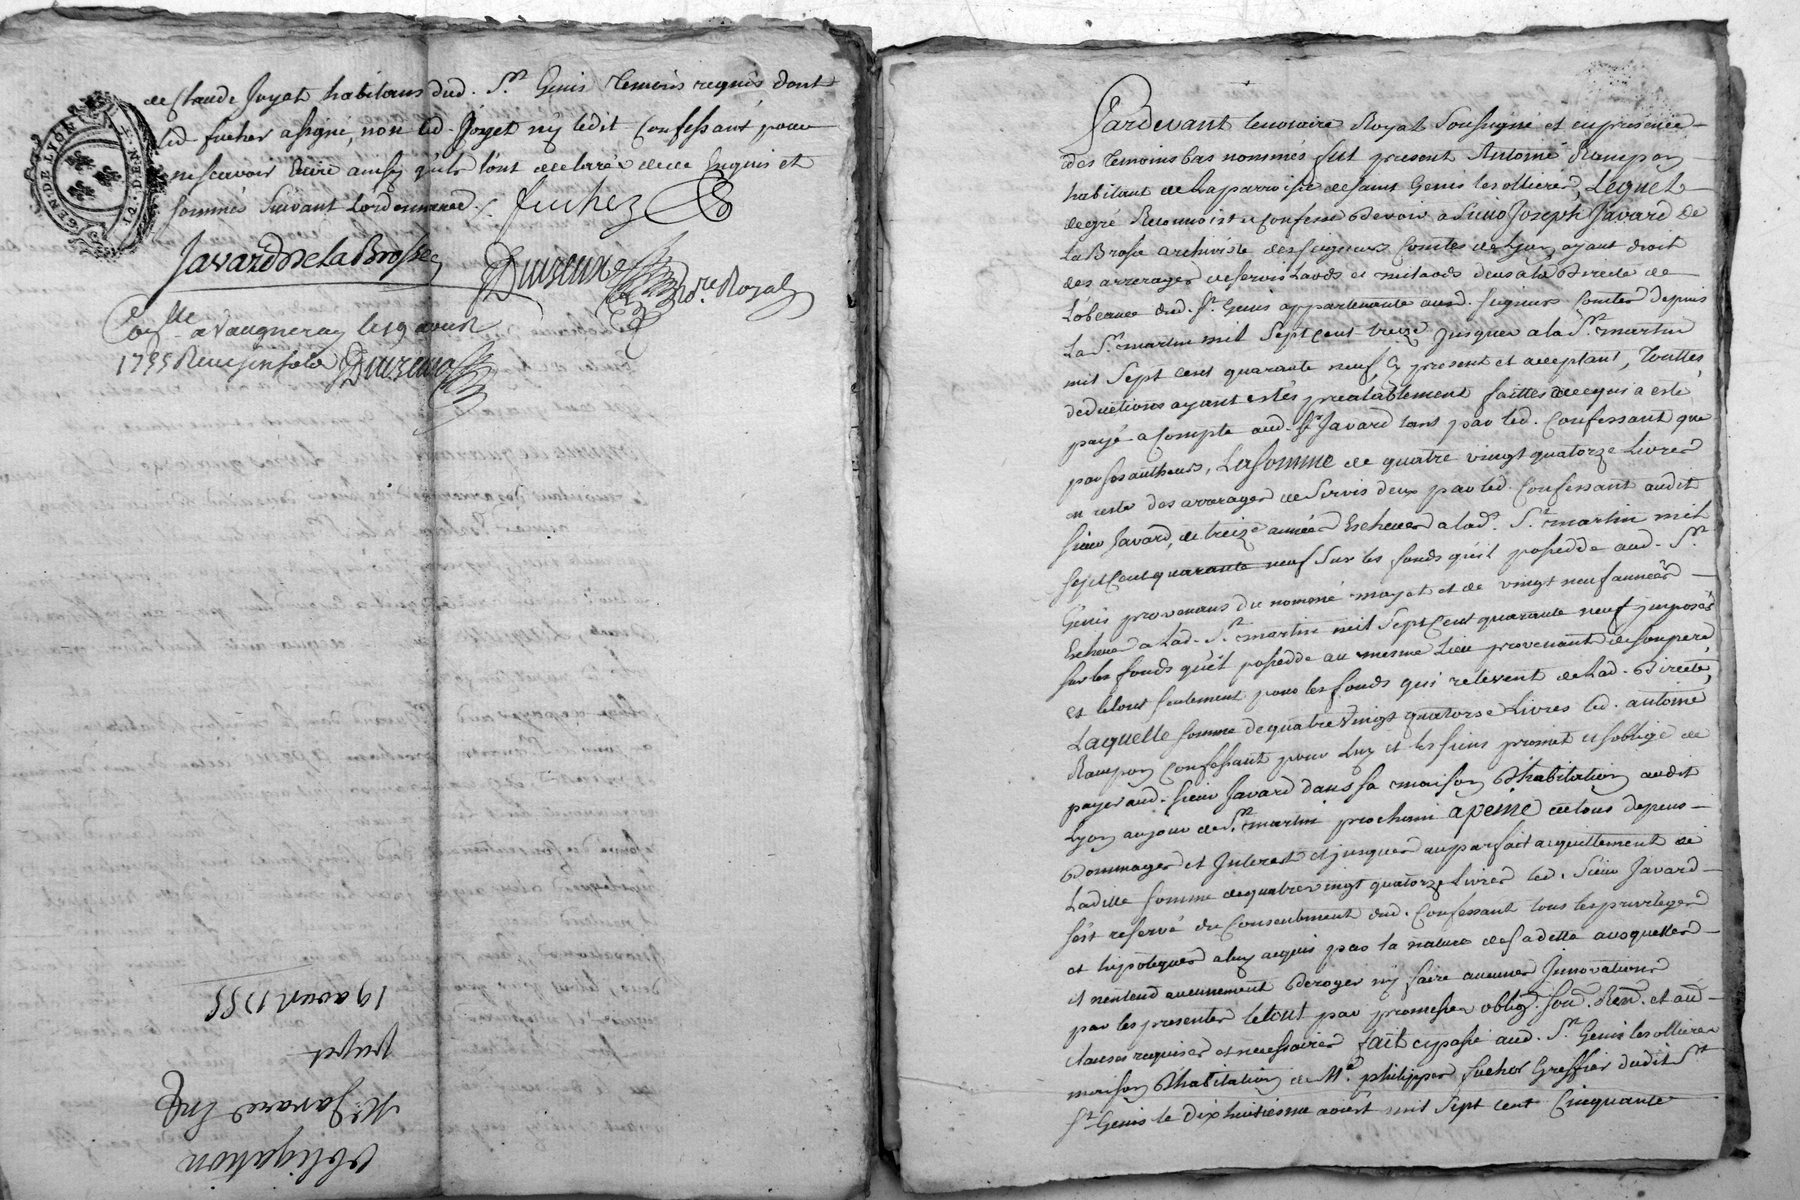 de Claude Joyet habitans dud. St Genis temoins requis dont
led. fucher a signé, non led. Joyet ny ledit Confessant pour
ne scavoir Ecrire ainsy qu'ils l'ont declaré de ce Enquis et
sommés suivant lordonnance.
fucher
Javard De La Brosse
Duizeune
Nore Royal
a Vaugneray le 19 aoust
1755 Receu
GEN. DE LYON
Obligation
Mr Javard
19 aoust 1755
Pardevant le notaire Royal Soussigné et en presence
des temoins bas nommés fut present Antoine Rampon
habitant de la parroisse de saint Genis les ollieres, Lequel
de gré Reconnoist et Confesse Devoir a Sieur Joseph Javard De
La Brosse archiviste des seigneurs Comtes de Lyon ayant droit
des arrerages de servis Laods et milaods deus a la Directe de
L'obeance dud. St Genis appartenante ausd. seigneurs Comtes depuis
La St martin mil Sept Cent treize jusques a la St martin
mil Sept Cent quarante neuf, Cy present et acceptant, Touttes
deductions ayant estés prealablement faittes de ce qui a esté
payé a Compte aud. Sr Javard tant par led. Confessant que
par ses autheurs, La somme de quatre vingt quatorze Livres
en reste des arrerages de Servis deux par led. Confessant audit
sieur Javard, de treize années Escheues a lade. St martin mil
sept Cent quarante neuf Sur les fonds qu'il possedde aud. St
Genis provenans du nommé mayet et de vingt neuf années
Escheue a Lad. St martin mil Sept Cent quarante neuf imposés
sur les fonds qu'il possedde au mesme Lieu provenant de son pere
et le tout seulement pour les fonds qui relevent de Lad. Directe,
Laquelle somme de quatre Vingt quatorze Livres led. antoine
Rampon Confessant pour Luy et les siens promet et s'oblige de
payer aud. sieur Javard dans sa maison D'habitation audit
Lyon au jour de St martin prochain a peine de tous depens
Dommages et Interest et jusques au parfait acquittement de
Laditte somme de quatre vingt quatorze Livres led. Sieur Javard
s'est reservé du Consentement dud. Confessant tous les privileges
et hipoteques a luy acquis par la nature de sa dette auxquelles
il n'entend aucunement Deroger ny faire aucunes Innovations
par les presentes le tout par promesses oblig. soûd. Rend. et aûd
clauses requises et necessaires fait et passé aud. St Genis les ollieres
maison D'habitation de Me philippes fucher Greffier dudit St
St Genis le dix huitiesme aoust mil Sept Cent Cinquante